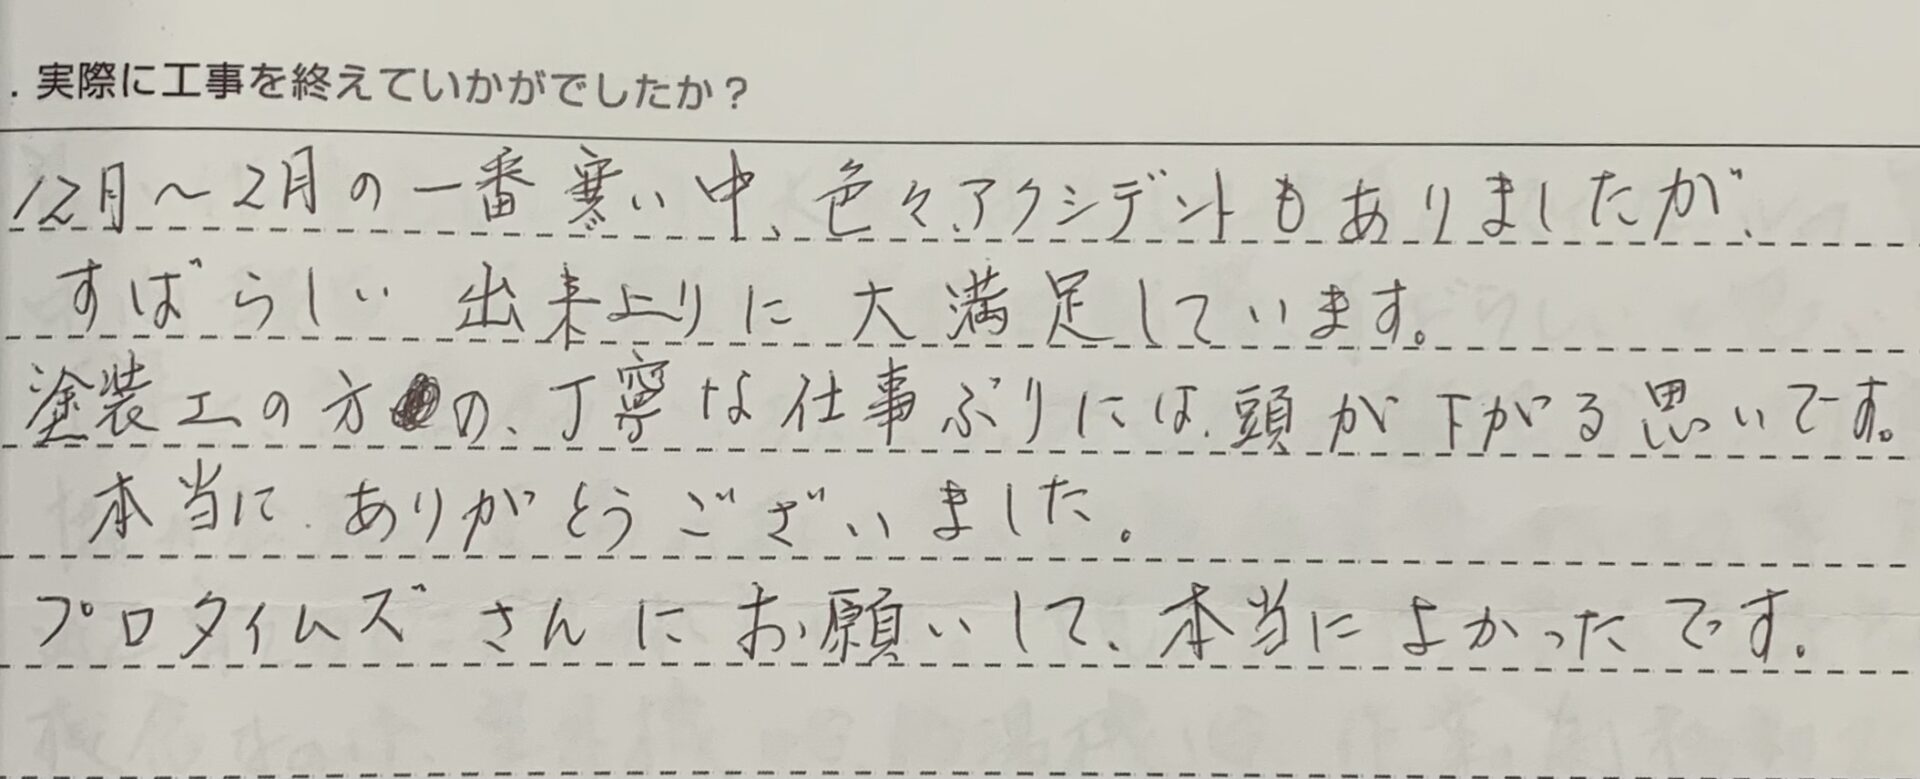 . 実際に工事を終えていかがでしたか？
12月〜2月の一番寒い中、色々アクシデントもありましたが、
すばらしい出来上りに大満足しています。
塗装工の方の、丁寧な仕事ぶりには、頭が下がる思いです。
本当に、ありがとうございました。
プロタイムズさんにお願いして、本当によかったです。